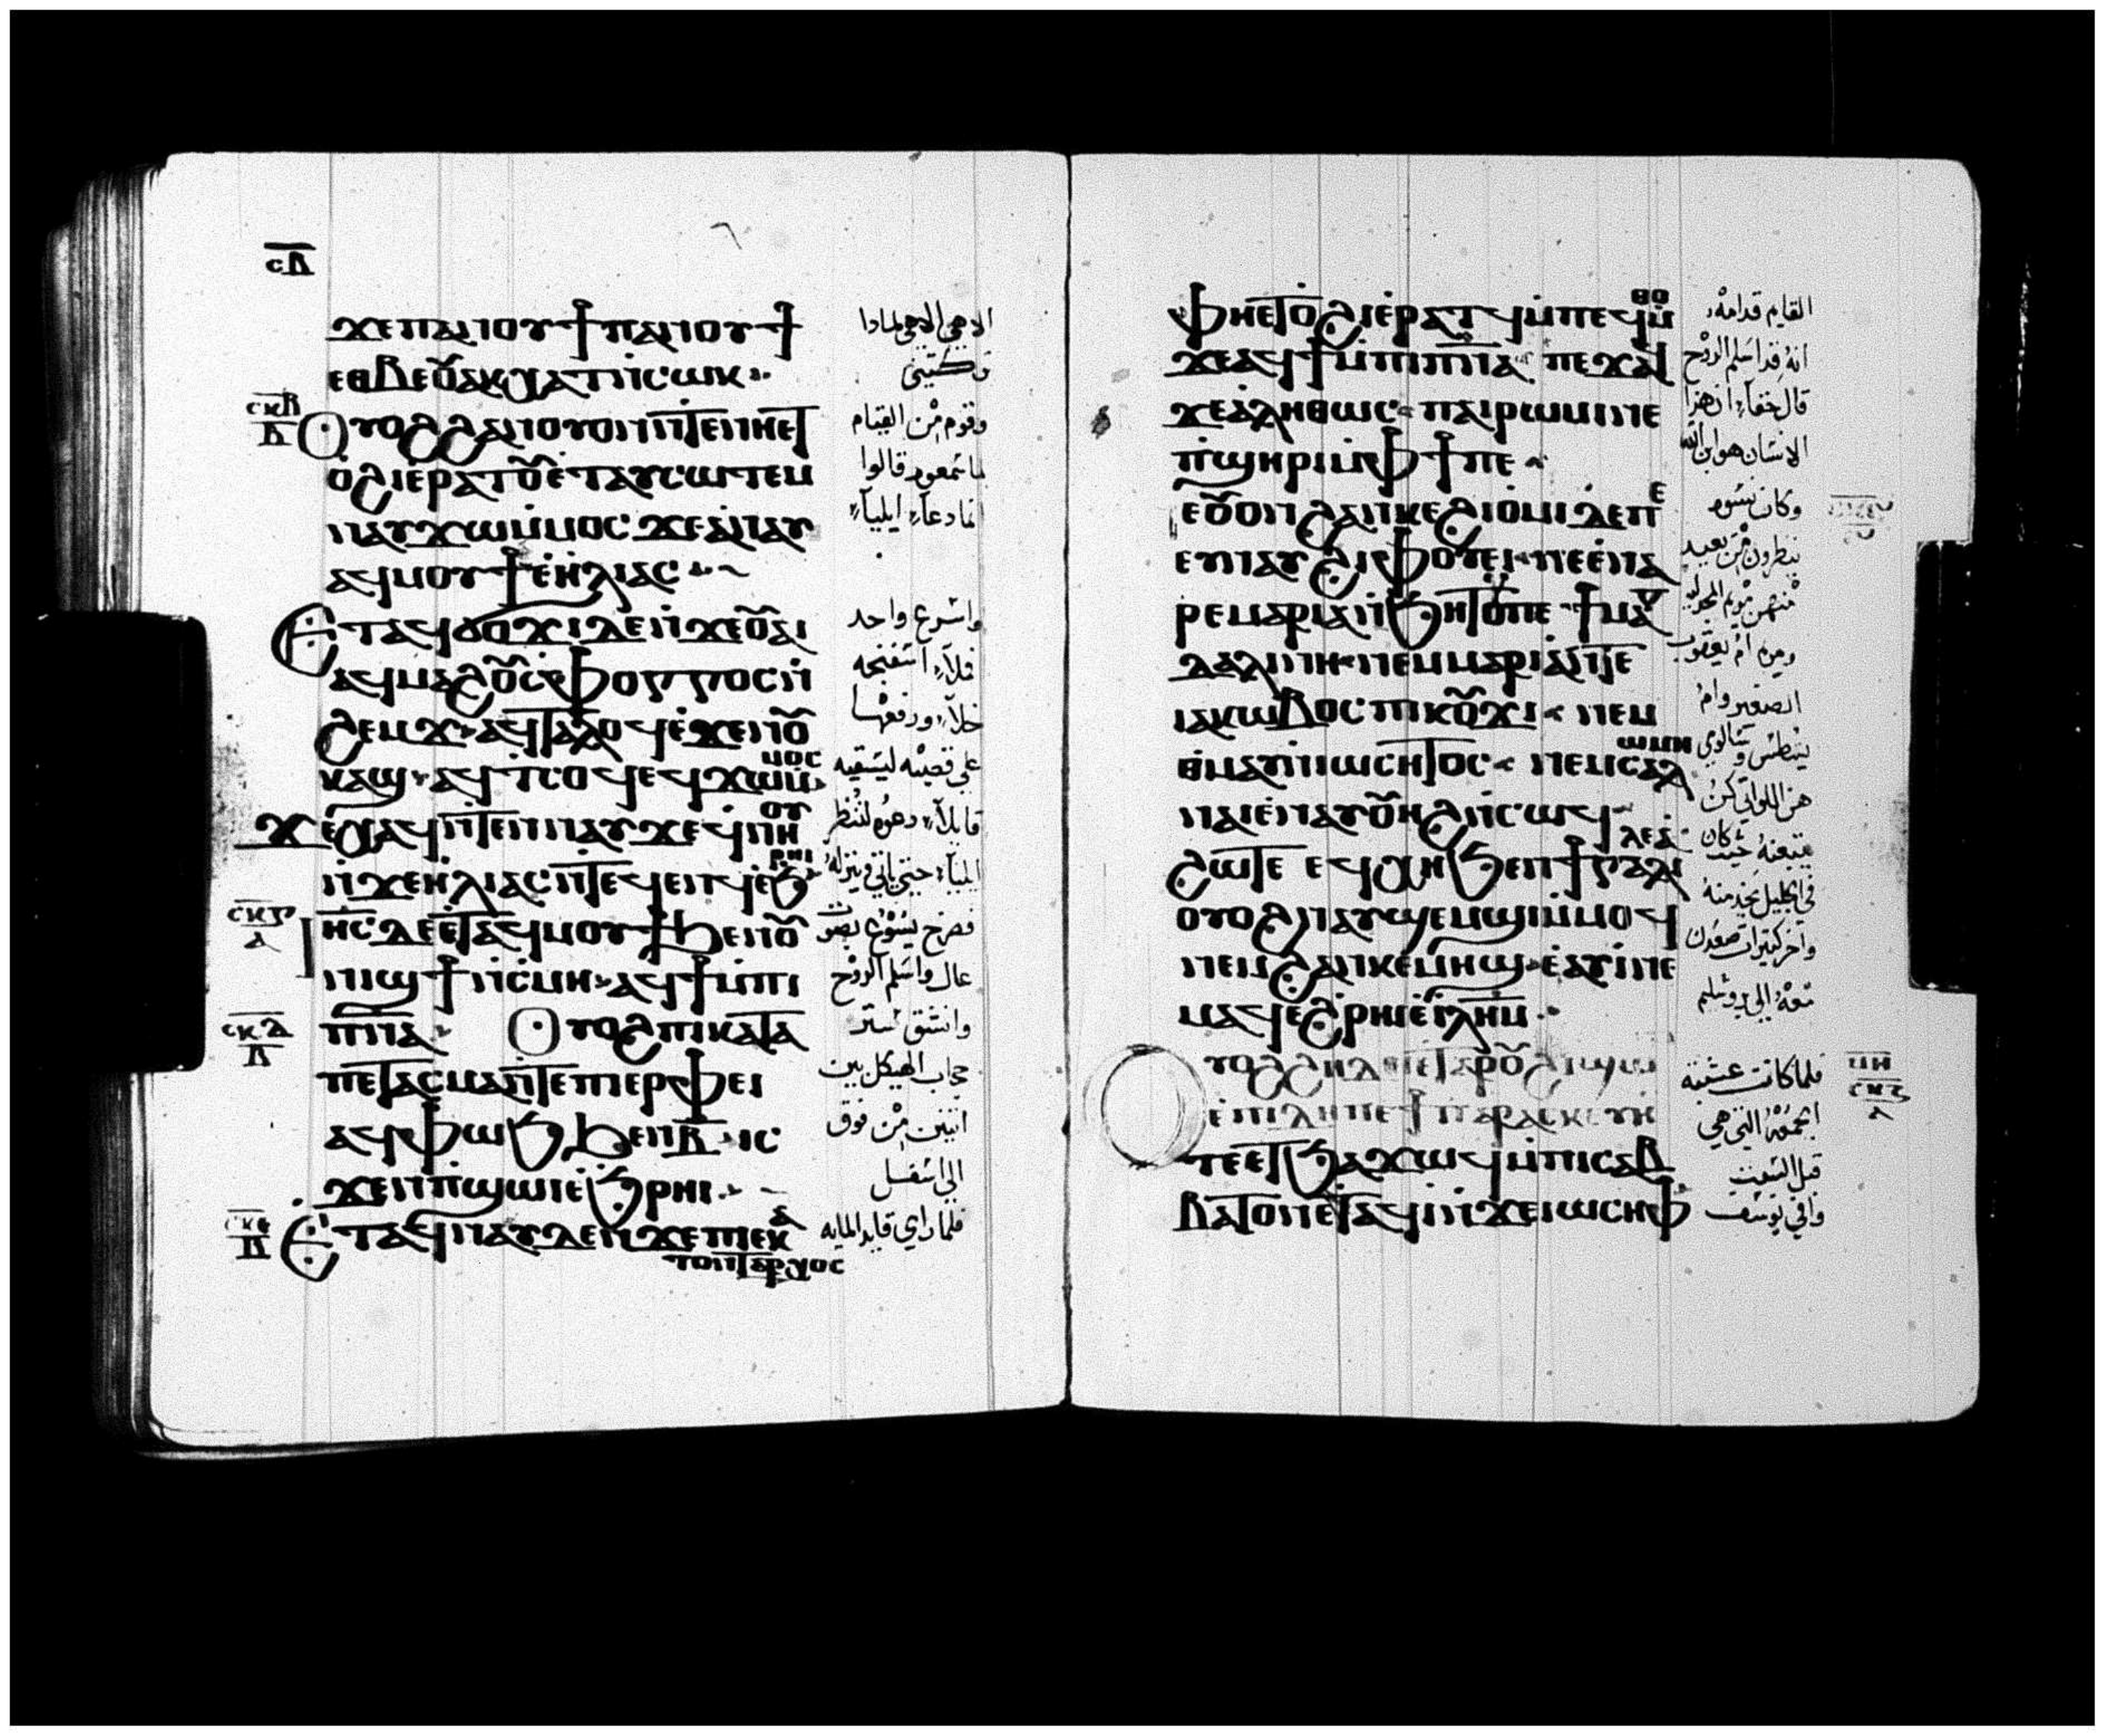 ⲥⲇ
ϫⲉⲡⲁⲛⲟⲩϯⲡⲁⲛⲟⲩϯ
ⲉⲑⲃⲉⲟⲩⲁⲕⲭⲁⲧⲛ̇ⲥⲱⲕ
ⲥⲕⲃ
ⲃ
Ⲟⲩⲟϩϩⲁⲛⲟⲩⲟⲛⲛ̇ⲧⲉⲛⲏⲉⲧ
ⲟ̇ϩⲓⲉ̇ⲣⲁⲧⲟⲩⲉ̇ⲧⲁⲩⲥⲱⲧⲉⲙ
ⲛⲁⲩϫⲱⲙ̇ⲙⲟⲥ ϫⲉⲁ̇ⲛⲁⲩ
ⲁϥⲙⲟⲩϯⲉ̇ⲏ̇ⲗⲓⲁⲥ
Ⲉⲧⲁϥϭⲟϫⲓⲇⲉⲛ̇ϫⲉⲟⲩⲁⲓ
ⲁϥⲙⲁϩⲟⲩⲥⲫⲟⲅⲅⲟⲥⲛ̇
ϩⲉⲙϫ ⲁϥⲧⲁⲗⲟϥⲉ̇ϫⲉⲛⲟⲩ
ⲕⲁϣ ⲁϥⲧⲥⲟϥⲉϥϫⲱⲙ̇ⲙⲟⲥ
ϫⲉⲭⲁϥⲛ̇ⲧⲉⲛⲛⲁⲩϫⲉϥⲛⲏⲟⲩ
ⲛ̇ϫⲉⲏ̇ⲗⲓⲁⲥⲛ̇ⲧⲉϥⲉⲛϥⲉ̇ϧⲣⲏⲓ
ⲥⲕⲅ
ⲁ
ⲓⲏⲥ ⲇⲉⲉ̇ⲧⲁϥⲙⲟⲩϯϧⲉⲛⲟⲩ
ⲛⲓϣϯⲛ̇ⲥⲙⲏ ⲁϥϯⲙ̇ⲡⲓ
ⲥⲕⲇ
ⲃ
ⲡⲛⲁ Ⲟⲩⲟϩⲡⲓⲕⲁⲧⲁ
ⲡⲉⲧⲁⲥⲙⲁⲛ̇ⲧⲉⲡⲓⲉⲣⲫⲉⲓ
ⲁϥⲫⲱϧϧⲉⲛⲃ ⲓⲥ
ϫⲉⲛⲡ̇ϣⲱⲓⲉ̇ϧⲣⲏⲓ
ⲥⲕⲉ
ⲃ
Ⲉⲧⲁϥⲛⲁⲩⲇⲉⲛ̇ϫⲉⲡⲓⲉⲕⲁ
ⲧⲟⲛⲧⲁⲣⲭⲟⲥ
الاهي الاهي لماذا
تركتني
وقوم من القيام
لما سمعوه قالوا
انما دعا ايليا
واسرع واحد
فملا اسفنجه
خلا ورفعها
على قصبه ليسقيه
قايلا دعوه لننظر
ايليا حتى ياتي وينزله
فصرخ يسوع بصوت
عال واسلم الروح
وانشق ستر
حجاب الهيكل بين
اثنين من فوق
الى اسفل
فلما راي قايد المايه
ⲫⲏⲉⲧⲟ̇ϩⲓⲉ̇ⲣⲁⲧϥⲙ̇ⲡⲉϥⲙ̇ⲑⲟ
ϫⲉⲁϥϯⲙ̇ⲡⲓⲡⲛⲁ ⲡⲉϫⲁϥ
ϫⲉⲁ̇ⲗⲏⲑⲱⲥ ⲡⲁⲓⲣⲱⲙⲓⲛⲉ
ⲡ̇ϣⲏⲣⲓⲙ̇ⲫϯⲡⲉ
ⲉⲟⲩⲟⲛϩⲁⲛⲕⲉϩⲓⲟ̇ⲙⲓⲇⲉⲡⲉ
ⲉⲩⲛⲁⲩϩⲓⲫⲟⲩⲉⲓ ⲛⲉⲉ̇ⲛⲁ
ⲣⲉⲙⲁⲣⲓⲁⲛ̇ϧⲏⲧⲟⲩⲡⲉ ϯⲙⲁⲅ
ⲇⲁⲗⲓⲛⲏ ⲛⲉⲙⲙⲁⲣⲓⲁ̇ⲛ̇ⲧⲉ
ⲓⲁⲕⲱⲃⲟⲥ ⲡⲓⲕⲟⲩϫⲓ ⲛⲉⲙ
ⲑ̇ⲙⲁⲩⲛ̇ⲓⲱⲥⲏⲧⲟⲥ ⲛⲉⲙⲥⲁⲗⲱⲙⲏ
ⲛⲁⲓⲉ̇ⲛⲁⲩⲟⲩⲏϩⲛ̇ⲥⲱϥ
ϩⲱⲧⲉ ⲉϥⲭⲏϧⲉⲛϯⲅⲁⲗⲓⲗⲉⲁ̇
ⲟⲩⲟϩⲛⲁⲩϣⲉⲙϣⲓⲙ̇ⲙⲟϥ
ⲛⲉⲙϩⲁⲛⲕⲉⲙⲏϣ ⲉ̇ⲁⲩⲓ̇ⲛⲉ
ⲙⲁϥⲉϩⲣⲏⲓⲉ̇ⲓⲗⲏⲙ
ⲩⲟϩϩⲏⲇⲏⲉⲧⲁⲣⲟⲩϩⲓϣⲱ
ⲉ̇ⲡⲓⲇⲏⲡⲉϯⲡⲁⲣⲁⲥⲕⲉⲩⲏ
ⲧⲉⲉⲧϧⲁϫⲱϥⲙ̇ⲡⲓⲥⲁⲃ
ⲃⲁⲧⲟⲛⲉⲧⲁϥⲓ̇ⲛ̇ϫⲉⲓⲱⲥⲏⲫ
القايم قدامه
انه قد اسلم الروح
قال حقا ان هذا
الانسان هو ابن الله
وكان نسوه
ينظرون من بعيد
منهن مريم المجدليه
ومريم ام يعقوب
الصغير وام
يوسيطس وسالومي
هن اللواتي كن
يتبعنه حيث كان
في الجليل يخدمنه
واخر كثيرات صعدن
معه الى يروشليم
ⲙⲏ
ⲥⲕⲍ
ⲁ
فلما كانت عشيه
الجمعه التي هي
قبل السبت
وافى يوسف